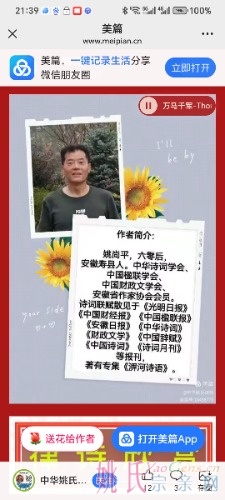 21:39
100%
美篇
www.meipian.cn
美篇，一键记录生活分享
微信朋友圈
立即打开
万马千军-Tho
I'll
be by
your side
作者简介:
姚尚平，六零后，
安徽寿县人。中华诗词学会、
中国楹联学会、
中国财政文学会、
安徽省作家协会会员。
诗词联赋散见于《光明日报》
《中国财经报》《中国楹联报》
《安徽日报》《中华诗词》
《财政文学》《中国辞赋》
《中国诗词》《诗词月刊》
等报刊，
著有专集《淠河诗语》。
送花给作者
打开美篇App
中华姚氏…
12
3
姚氏宗亲网